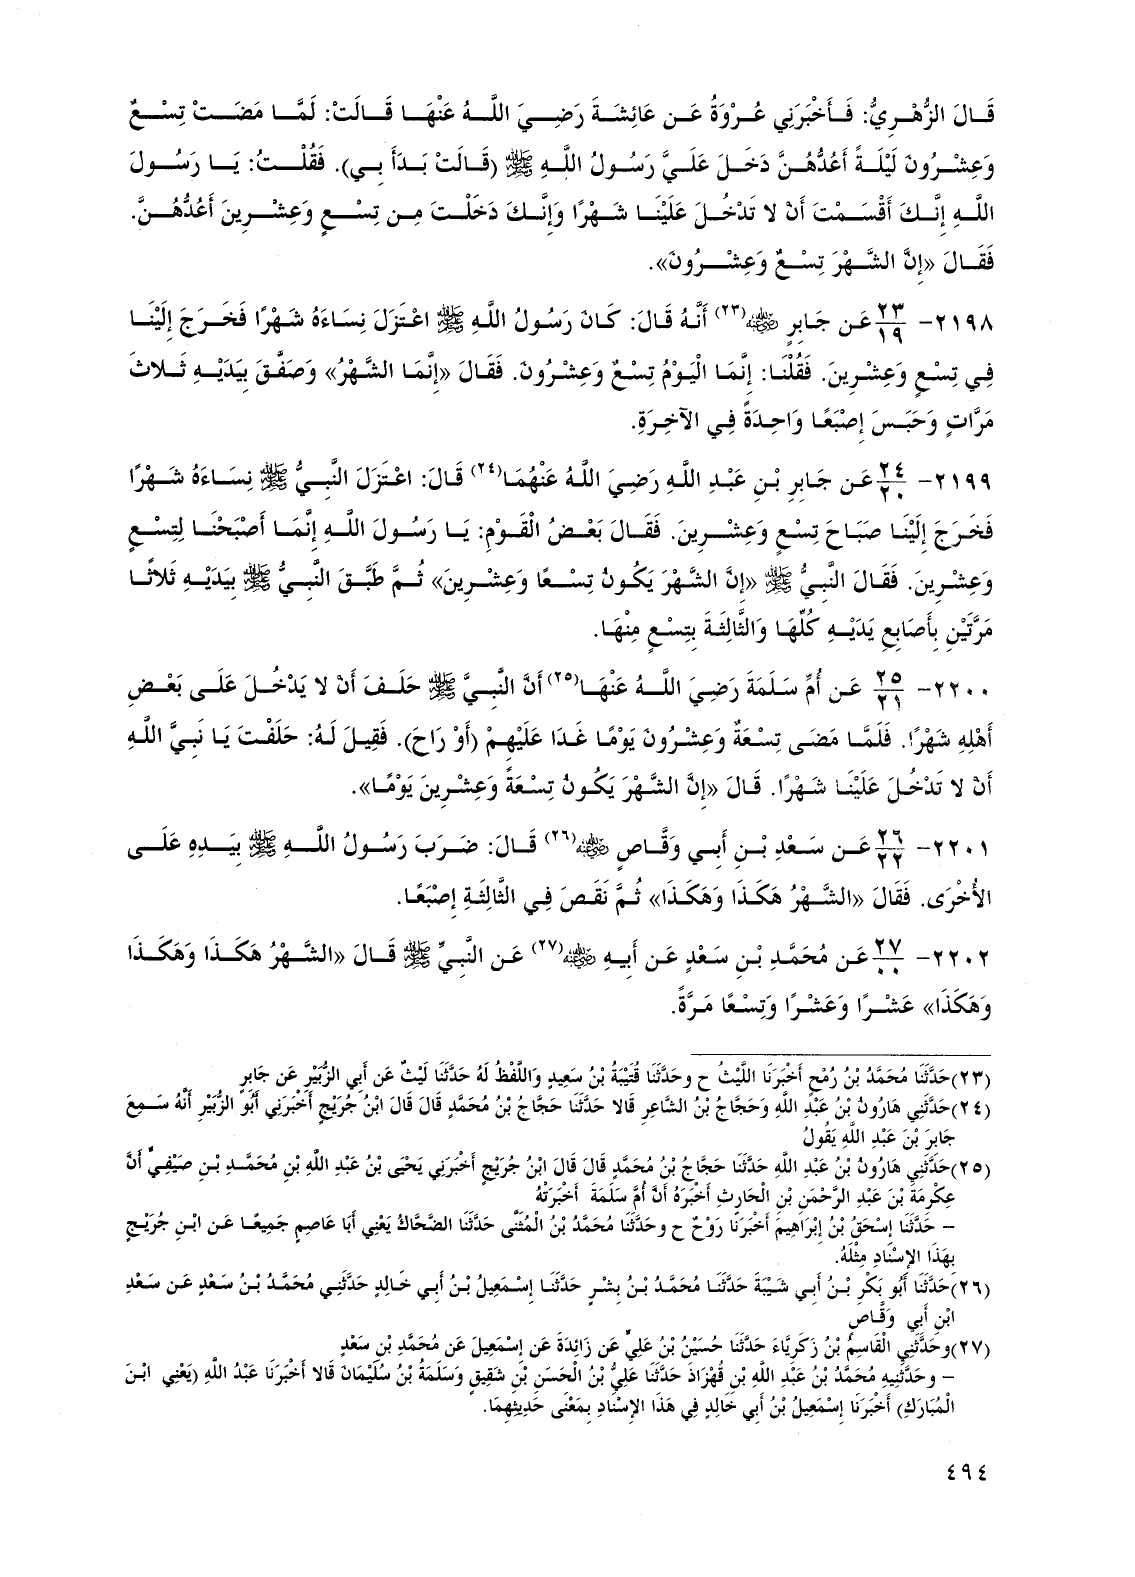 قَالَ الزُّهْرِيُّ: فَأَخْبَرَنِي عُرْوَةُ عَن عَائِشَةَ رَضِيَ اللَّهُ عَنْهَا قَالَتْ: لَمَّا مَضَتْ تِسْعٌ
وَعِشْرُونَ لَيْلَةً أَعُدُّهُنَّ دَخَلَ عَلَيَّ رَسُولُ اللَّهِ ﷺ (قَالَتْ بَدَأَ بِي). فَقُلْتُ: يَا رَسُولَ
اللَّهِ إِنَّكَ أَقْسَمْتَ أَنْ لا تَدْخُلَ عَلَيْنَا شَهْرًا وَإِنَّكَ دَخَلْتَ مِن تِسْعٍ وَعِشْرِينَ أَعُدُّهُنَّ.
فَقَالَ «إِنَّ الشَّهْرَ تِسْعٌ وَعِشْرُونَ».
٢١٩٨- ٢٣/١٩ عَن جَابِرٍ ﵁(٢٣) أَنَّهُ قَالَ: كَانَ رَسُولُ اللَّهِ ﷺ اعْتَزَلَ نِسَاءَهُ شَهْرًا فَخَرَجَ إِلَيْنَا
فِي تِسْعٍ وَعِشْرِينَ. فَقُلْنَا: إِنَّمَا الْيَوْمُ تِسْعٌ وَعِشْرُونَ. فَقَالَ «إِنَّمَا الشَّهْرُ» وَصَفَّقَ بِيَدَيْهِ ثَلاثَ
مَرَّاتٍ وَحَبَسَ إِصْبَعًا وَاحِدَةً فِي الآخِرَةِ.
٢١٩٩- ٢٤/٢٠ عَن جَابِرِ بْنِ عَبْدِ اللَّهِ رَضِيَ اللَّهُ عَنْهُمَا(٢٤) قَالَ: اعْتَزَلَ النَّبِيُّ ﷺ نِسَاءَهُ شَهْرًا
فَخَرَجَ إِلَيْنَا صَبَاحَ تِسْعٍ وَعِشْرِينَ. فَقَالَ بَعْضُ الْقَوْمِ: يَا رَسُولَ اللَّهِ إِنَّمَا أَصْبَحْنَا لِتِسْعٍ
وَعِشْرِينَ. فَقَالَ النَّبِيُّ ﷺ «إِنَّ الشَّهْرَ يَكُونُ تِسْعًا وَعِشْرِينَ» ثُمَّ طَبَّقَ النَّبِيُّ ﷺ بِيَدَيْهِ ثَلاثًا
مَرَّتَيْنِ بِأَصَابِعِ يَدَيْهِ كُلِّهَا وَالثَّالِثَةَ بِتِسْعٍ مِنْهَا.
٢٢٠٠- ٢٥/٢١ عَن أُمِّ سَلَمَةَ رَضِيَ اللَّهُ عَنْهَا(٢٥) أَنَّ النَّبِيَّ ﷺ حَلَفَ أَنْ لا يَدْخُلَ عَلَى بَعْضِ
أَهْلِهِ شَهْرًا. فَلَمَّا مَضَى تِسْعَةٌ وَعِشْرُونَ يَوْمًا غَدَا عَلَيْهِمْ (أَوْ رَاحَ). فَقِيلَ لَهُ: حَلَفْتَ يَا نَبِيَّ اللَّهِ
أَنْ لا تَدْخُلَ عَلَيْنَا شَهْرًا. قَالَ «إِنَّ الشَّهْرَ يَكُونُ تِسْعَةً وَعِشْرِينَ يَوْمًا».
٢٢٠١- ٢٦/٢٢ عَن سَعْدِ بْنِ أَبِي وَقَّاصٍ ﵁(٢٦) قَالَ: ضَرَبَ رَسُولُ اللَّهِ ﷺ بِيَدِهِ عَلَى
الأُخْرَى. فَقَالَ «الشَّهْرُ هَكَذَا وَهَكَذَا» ثُمَّ نَقَصَ فِي الثَّالِثَةِ إِصْبَعًا.
٢٢٠٢- ٢٧/٠٠ عَن مُحَمَّدِ بْنِ سَعْدٍ عَن أَبِيهِ ﵁(٢٧) عَن النَّبِيِّ ﷺ قَالَ «الشَّهْرُ هَكَذَا وَهَكَذَا
وَهَكَذَا» عَشْرًا وَعَشْرًا وَتِسْعًا مَرَّةً.
(٢٣)حَدَّثَنَا مُحَمَّدُ بْنُ رُمْحٍ أَخْبَرَنَا اللَّيْثُ ح وحَدَّثَنَا قُتَيْبَةُ بْنُ سَعِيدٍ وَاللَّفْظُ لَهُ حَدَّثَنَا لَيْثٌ عَن أَبِي الزُّبَيْرِ عَن جَابِرٍ
(٢٤)حَدَّثَنِي هَارُونُ بْنُ عَبْدِ اللَّهِ وَحَجَّاجُ بْنُ الشَّاعِرِ قَالا حَدَّثَنَا حَجَّاجُ بْنُ مُحَمَّدٍ قَالَ قَالَ ابْنُ جُرَيْجٍ أَخْبَرَنِي أَبُو الزُّبَيْرِ أَنَّهُ سَمِعَ
جَابِرَ بْنَ عَبْدِ اللَّهِ يَقُولُ
(٢٥)حَدَّثَنِي هَارُونُ بْنُ عَبْدِ اللَّهِ حَدَّثَنَا حَجَّاجُ بْنُ مُحَمَّدٍ قَالَ قَالَ ابْنُ جُرَيْجٍ أَخْبَرَنِي يَحْيَى بْنُ عَبْدِ اللَّهِ بْنِ مُحَمَّدِ بْنِ صَيْفِيٍّ أَنَّ
عِكْرِمَةَ بْنَ عَبْدِ الرَّحْمَنِ بْنِ الْحَارِثِ أَخْبَرَهُ أَنَّ أُمَّ سَلَمَةَ أَخْبَرَتْهُ
– حَدَّثَنَا إِسْحَقُ بْنُ إِبْرَاهِيمَ أَخْبَرَنَا رَوْحٌ ح وحَدَّثَنَا مُحَمَّدُ بْنُ الْمُثَنَّى حَدَّثَنَا الضَّحَّاكُ يَعْنِي أَبَا عَاصِمٍ جَمِيعًا عَن ابْنِ جُرَيْجٍ
بِهَذَا الإِسْنَادِ مِثْلَهُ.
(٢٦)حَدَّثَنَا أَبُو بَكْرِ بْنُ أَبِي شَيْبَةَ حَدَّثَنَا مُحَمَّدُ بْنُ بِشْرٍ حَدَّثَنَا إِسْمَعِيلُ بْنُ أَبِي خَالِدٍ حَدَّثَنِي مُحَمَّدُ بْنُ سَعْدٍ عَن سَعْدِ
ابْنِ أَبِي وَقَّاصٍ
(٢٧)وحَدَّثَنِي الْقَاسِمُ بْنُ زَكَرِيَّاءَ حَدَّثَنَا حُسَيْنُ بْنُ عَلِيٍّ عَن زَائِدَةَ عَن إِسْمَعِيلَ عَن مُحَمَّدِ بْنِ سَعْدٍ
– وحَدَّثَنِيهِ مُحَمَّدُ بْنُ عَبْدِ اللَّهِ بْنِ قُهْزَاذَ حَدَّثَنَا عَلِيُّ بْنُ الْحَسَنِ بْنِ شَقِيقٍ وَسَلَمَةُ بْنُ سُلَيْمَانَ قَالا أَخْبَرَنَا عَبْدُ اللَّهِ (يَعْنِي ابْنَ
الْمُبَارَكِ) أَخْبَرَنَا إِسْمَعِيلُ بْنُ أَبِي خَالِدٍ فِي هَذَا الإِسْنَادِ بِمَعْنَى حَدِيثِهِمَا.
٤٩٤